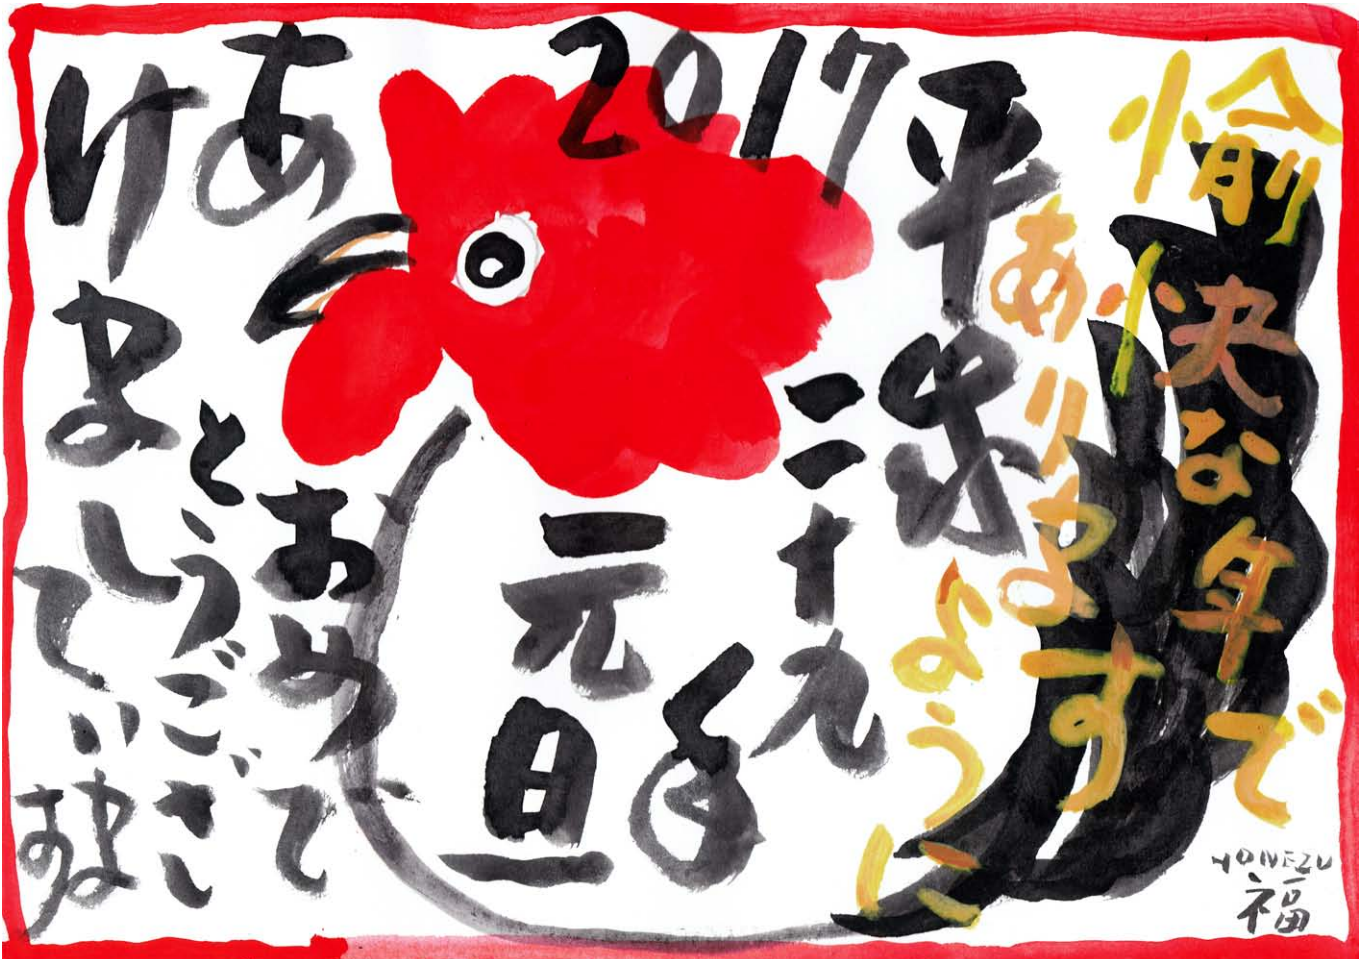 2017
愉快な年で
あります
ように
平成
二十九
年
元旦
あ
けまして
おめで
とうござ
います
YONEZU
福